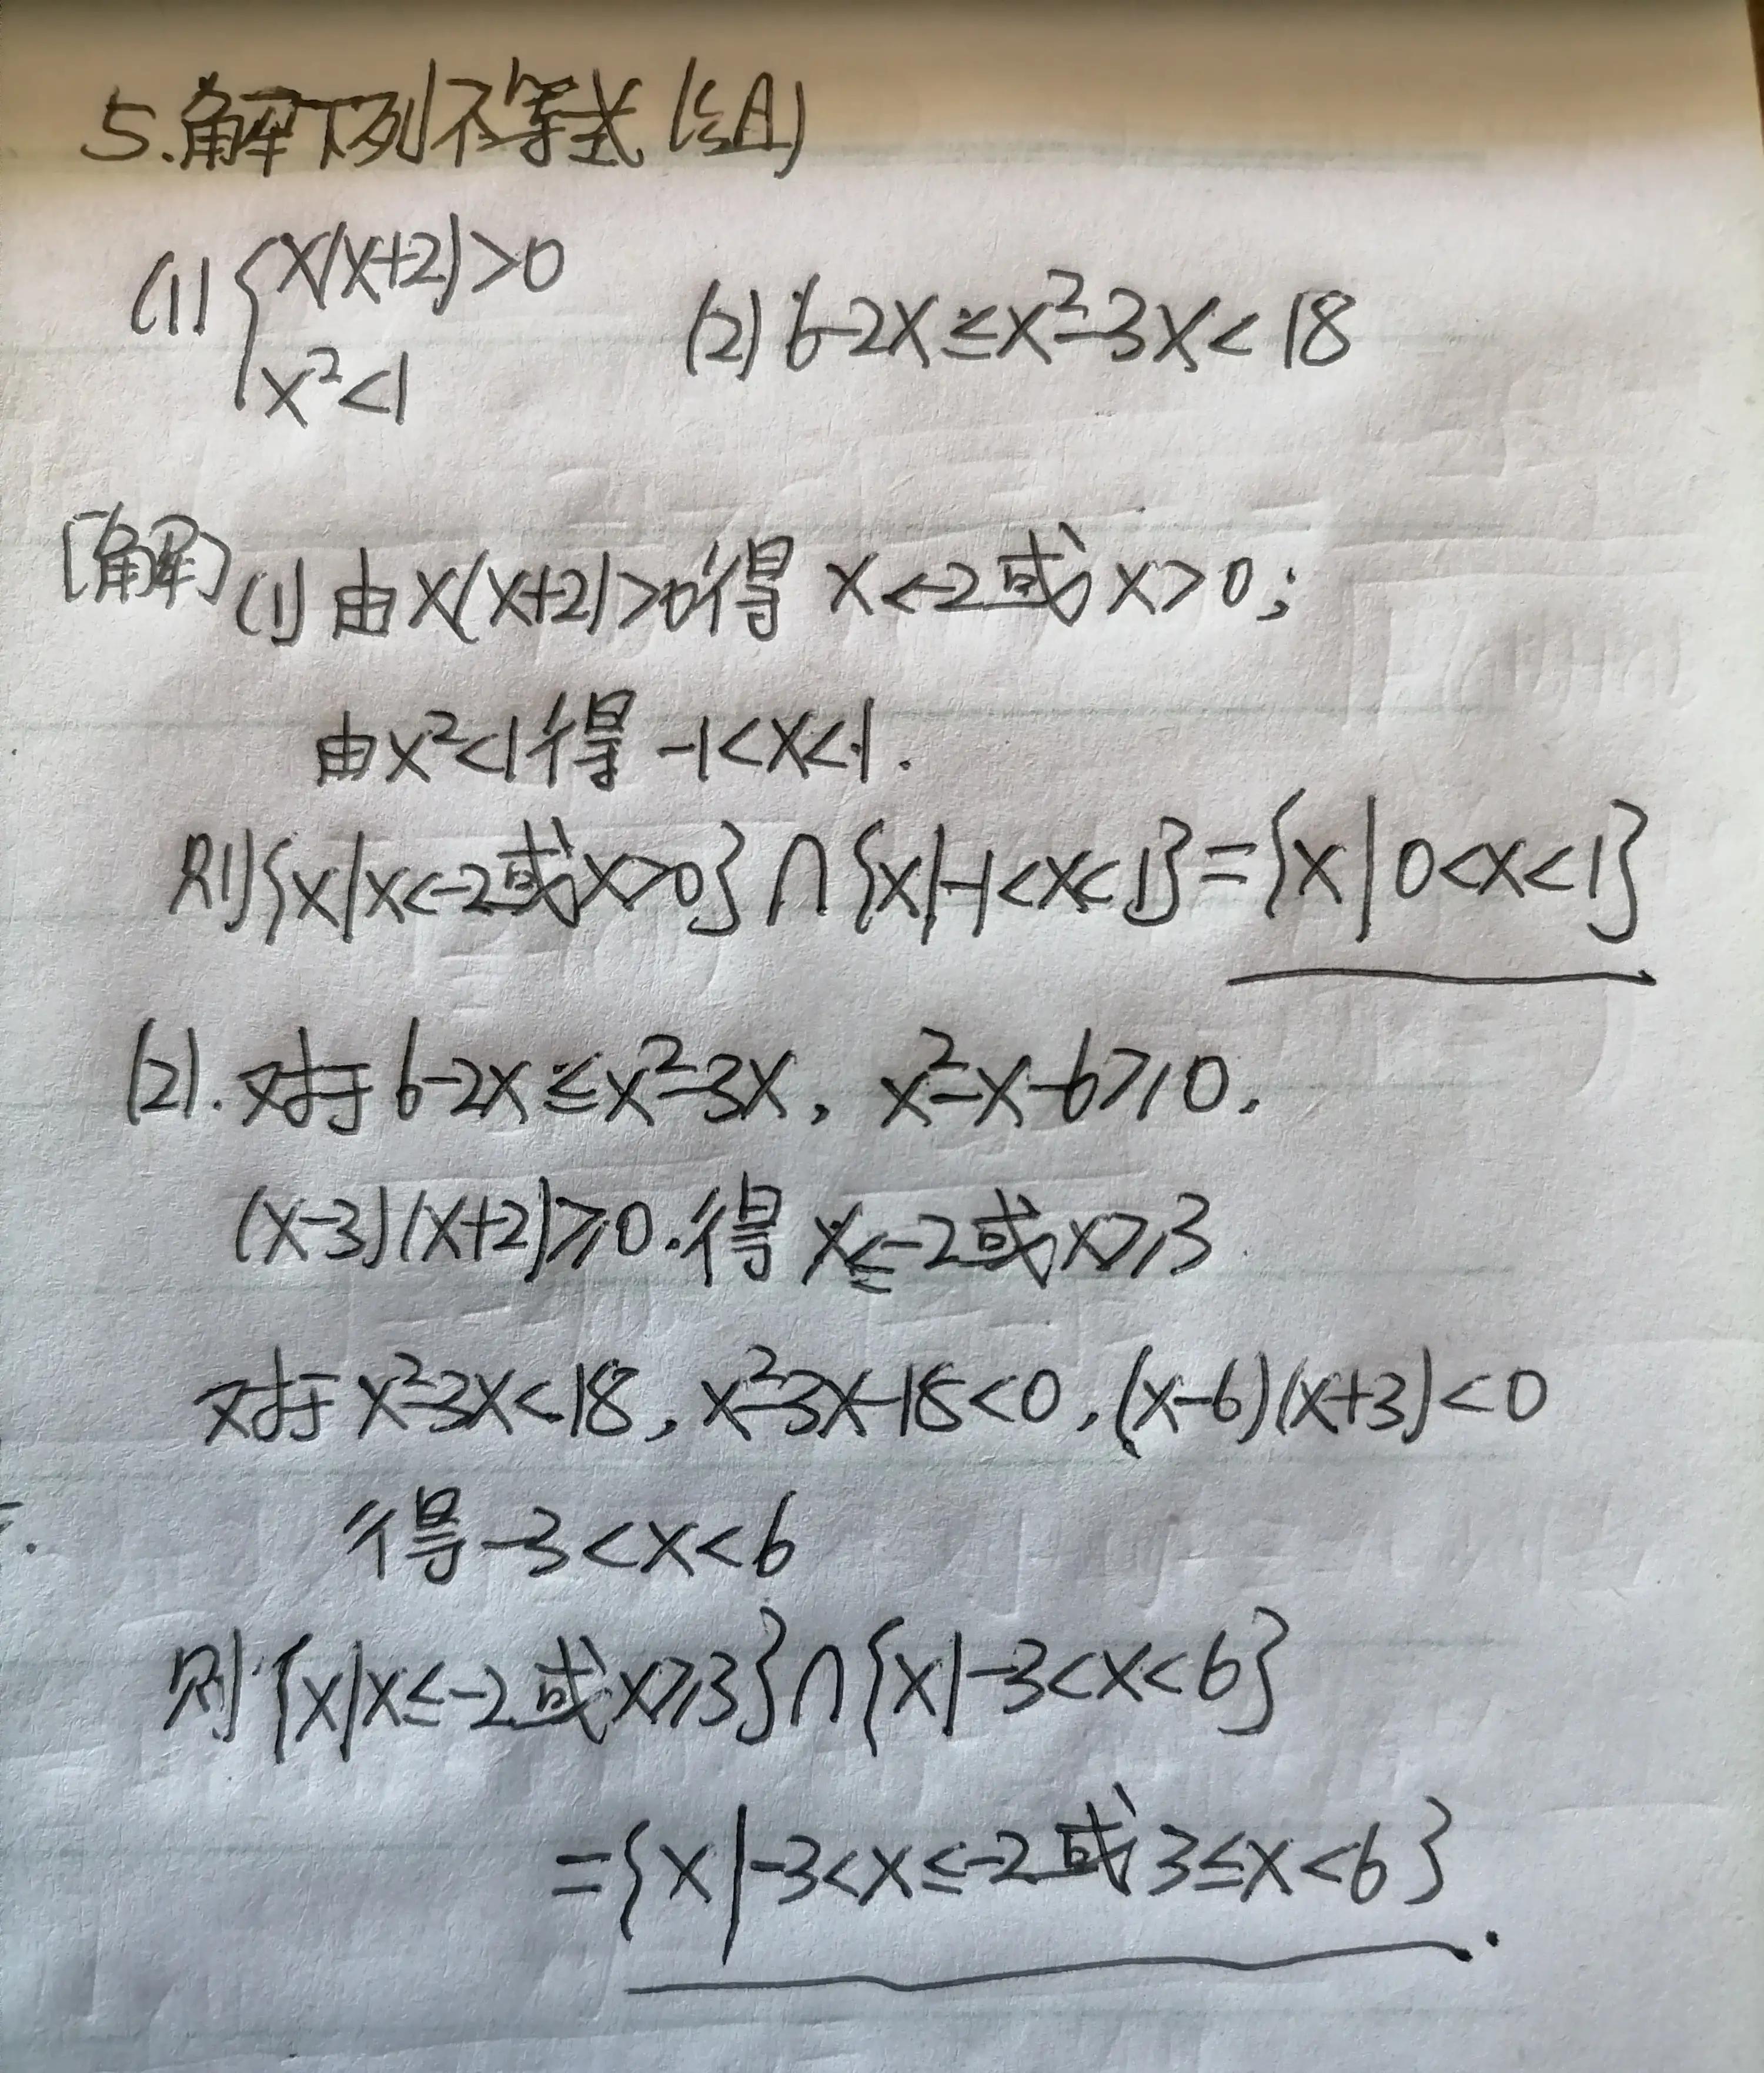 5.解下列不等式(组)
(1) { x(x+2)>0
x²<1
(2) 6-2x≤x²-3x<18
[解] (1) 由x(x+2)>0得 x<-2或x>0;
由x²<1得 -1<x<1.
则{x|x<-2或x>0}∩{x|-1<x<1}={x|0<x<1}
(2). 对于6-2x≤x²-3x, x²-x-6≥0,
(x-3)(x+2)≥0.得 x≤-2或x≥3
对于x²-3x<18, x²-3x-18<0, (x-6)(x+3)<0
得-3<x<6
则{x|x≤-2或x≥3}∩{x|-3<x<6}
={x|-3<x≤-2或3≤x<6}.